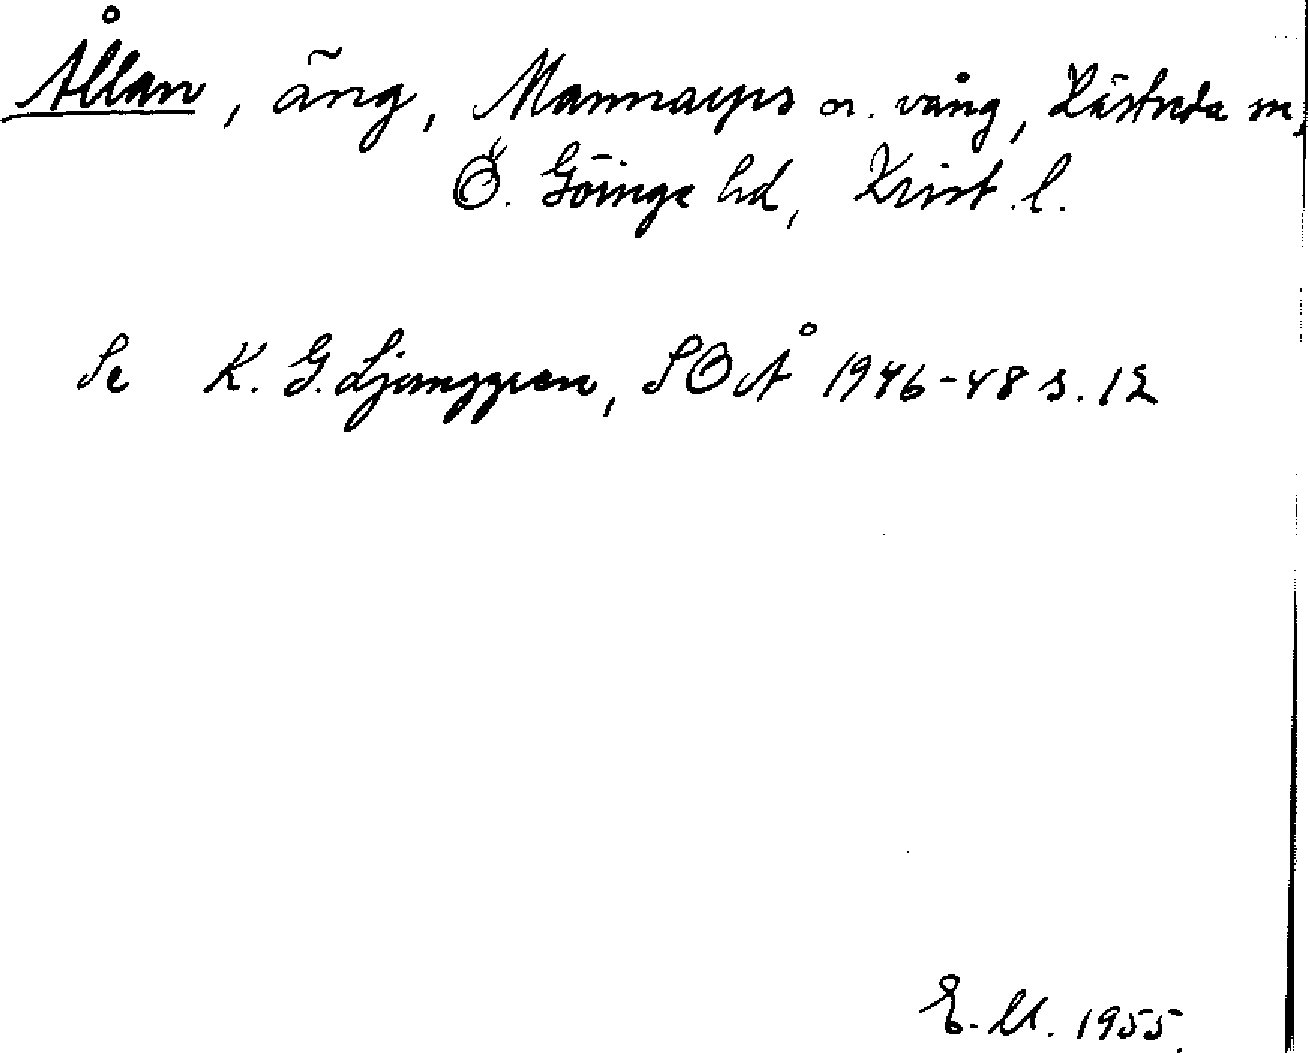 Ållan, äng, Mannarps n. vång, Kviinge sn,
Ö. Göinge hd, Krist. l.
Se K. G. Ljunggren, SOÅ 1946-48 s. 12
E. M. 1955.